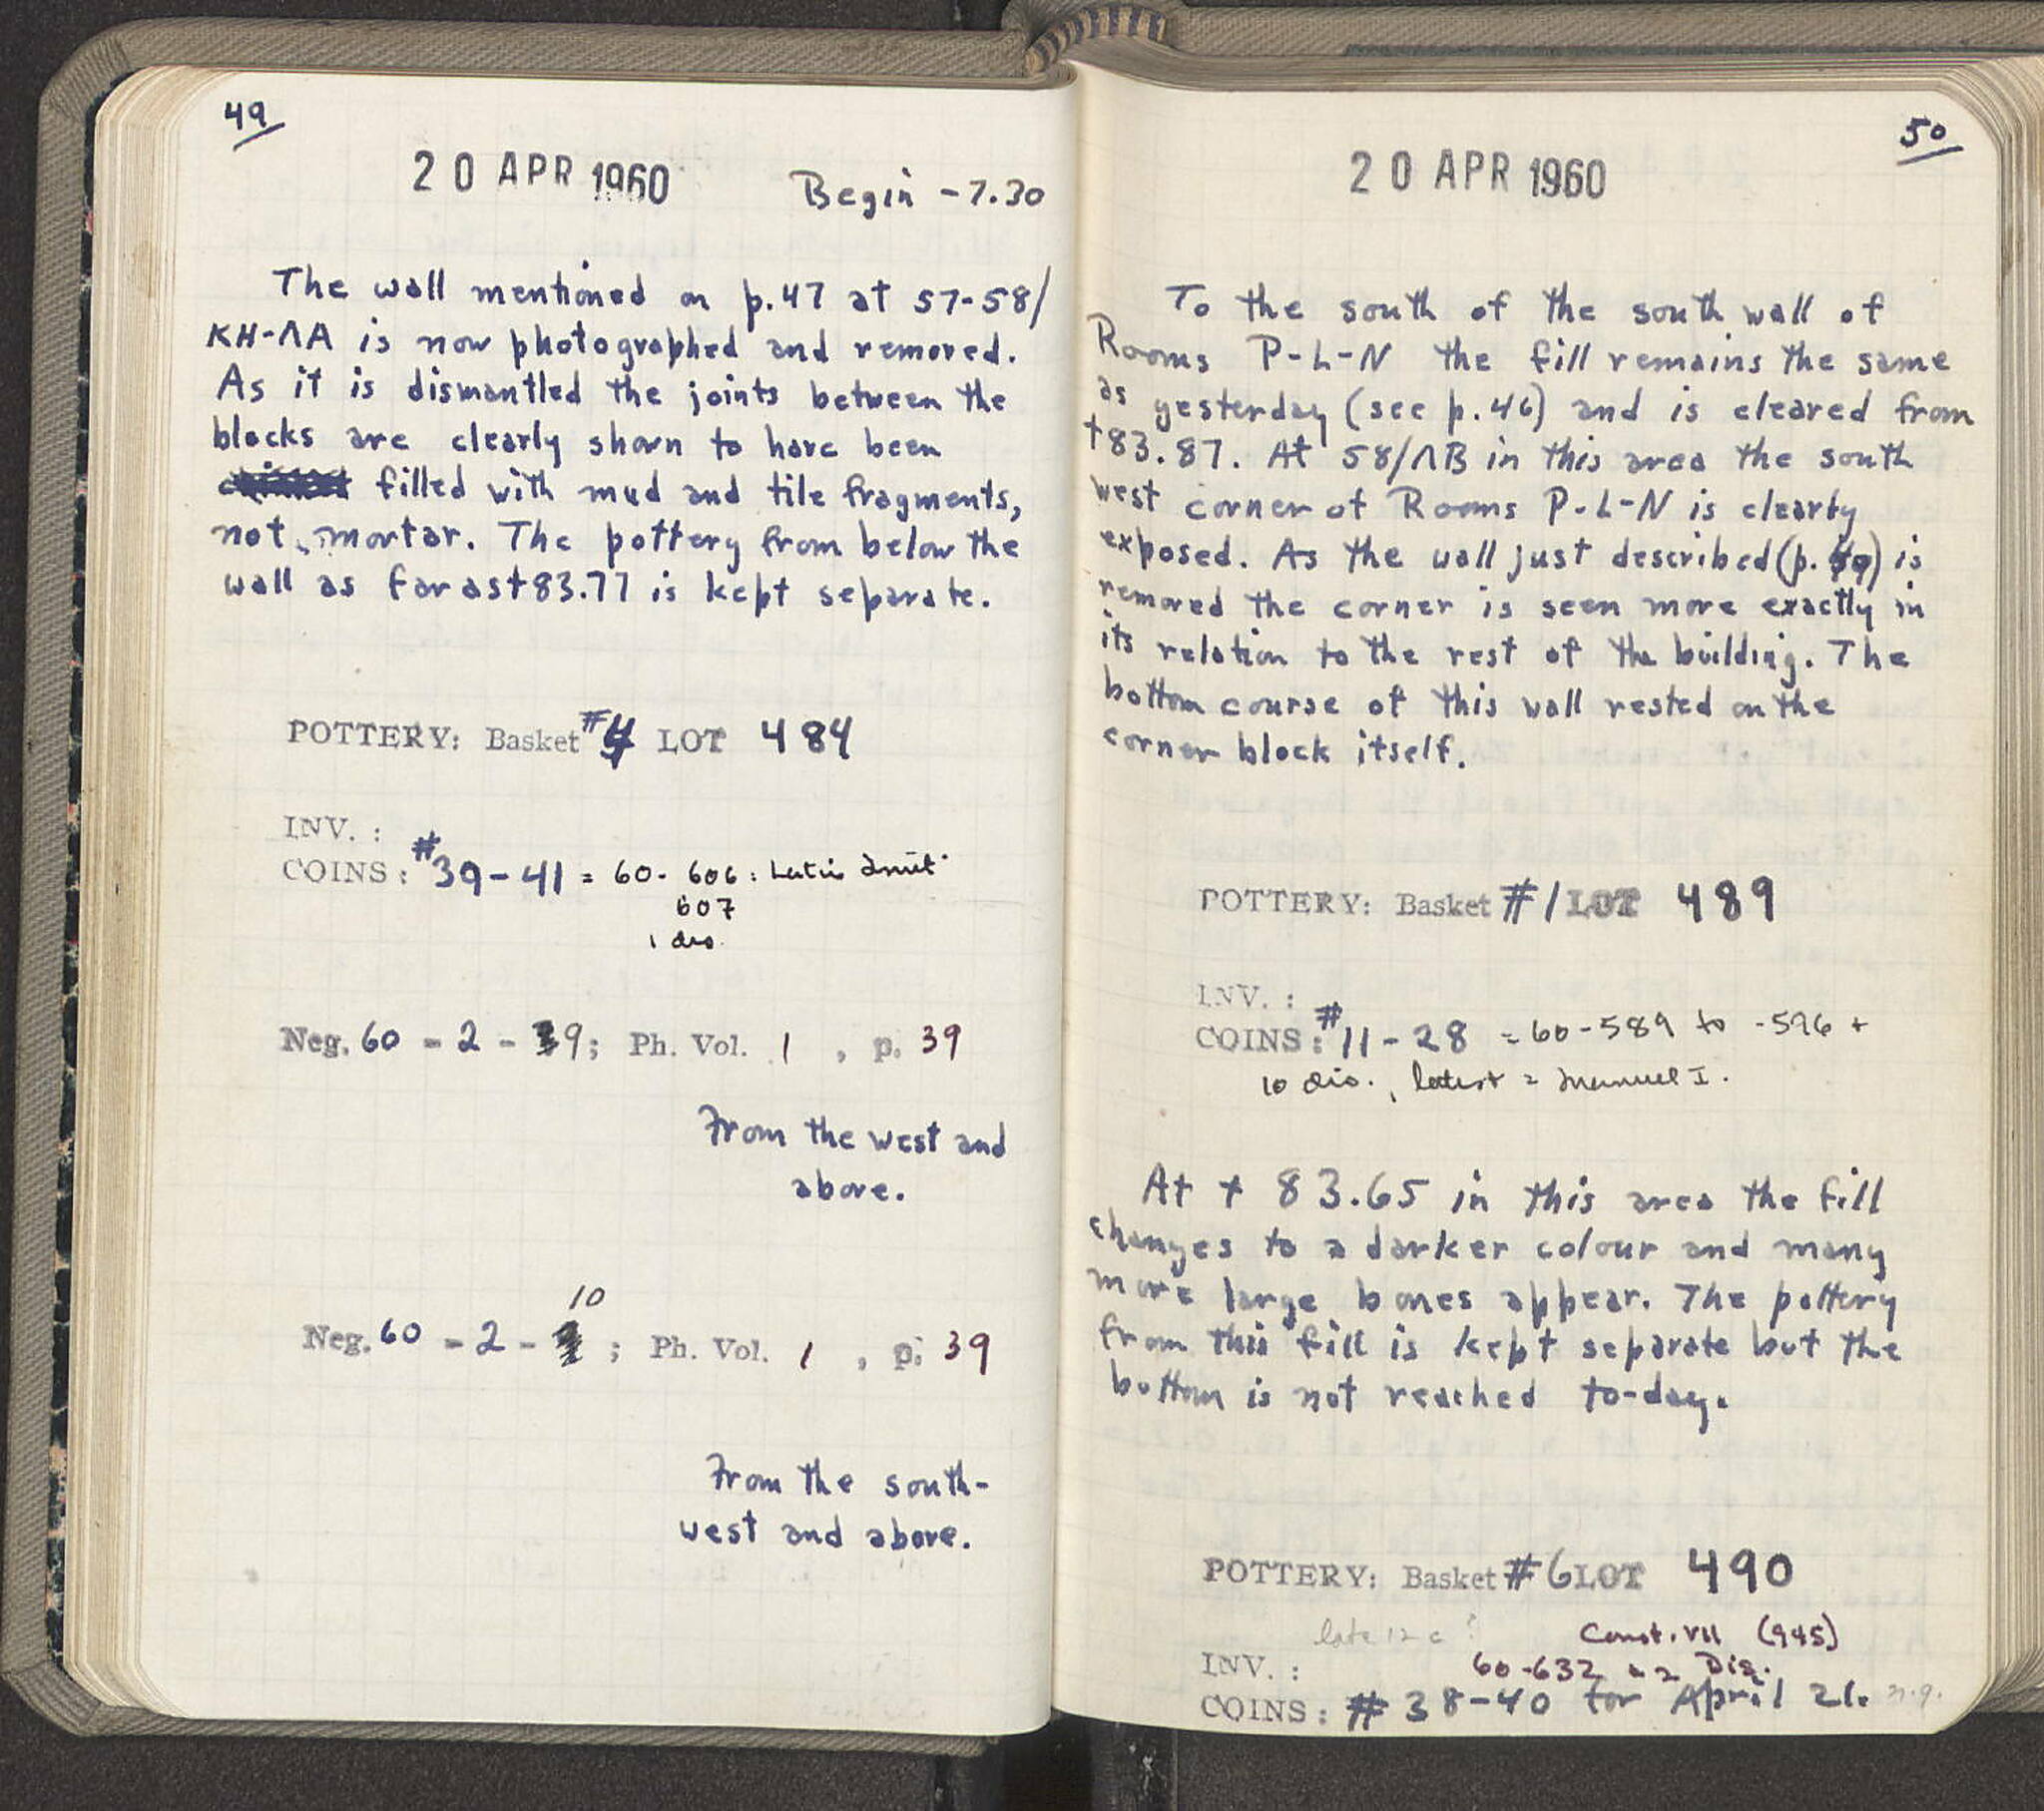 49
20 APR 1960 Begin - 7.30
The wall mentioned on p.47 at 57-58/
KH-ΛA is now photographed and removed.
As it is dismantled the joints between the
blocks are clearly shown to have been
filled with mud and tile fragments,
not mortar. The pottery from below the
wall as far as +83.77 is kept separate.
POTTERY: Basket #4 LOT 484
INV. :
COINS: #39-41 = 60-606: Latin Imit.
607
1 dis.
Neg. 60 - 2 - 9; Ph. Vol. 1 , p. 39
From the west and
above.
10
Neg. 60 - 2 - ; Ph. Vol. 1 , p. 39
From the south-
west and above.
50
20 APR 1960
To the south of the south wall of
Rooms P-L-N the fill remains the same
as yesterday (see p.46) and is cleared from
+83.87. At 58/ΛB in this area the south
west corner of Rooms P-L-N is clearly
exposed. As the wall just described (p.49) is
removed the corner is seen more exactly in
its relation to the rest of the building. The
bottom course of this wall rested on the
corner block itself.
POTTERY: Basket #1 LOT 489
INV. :
COINS: #11-28 = 60-589 to -596 +
10 dis., latest = Manuel I.
At + 83.65 in this area the fill
changes to a darker colour and many
more large bones appear. The pottery
from this fill is kept separate but the
bottom is not reached to-day.
POTTERY: Basket #6 LOT 490
late 12 c ? Const. VII (945)
INV. : 60-632 2 Dis.
COINS: #38-40 for April 21. n.g.